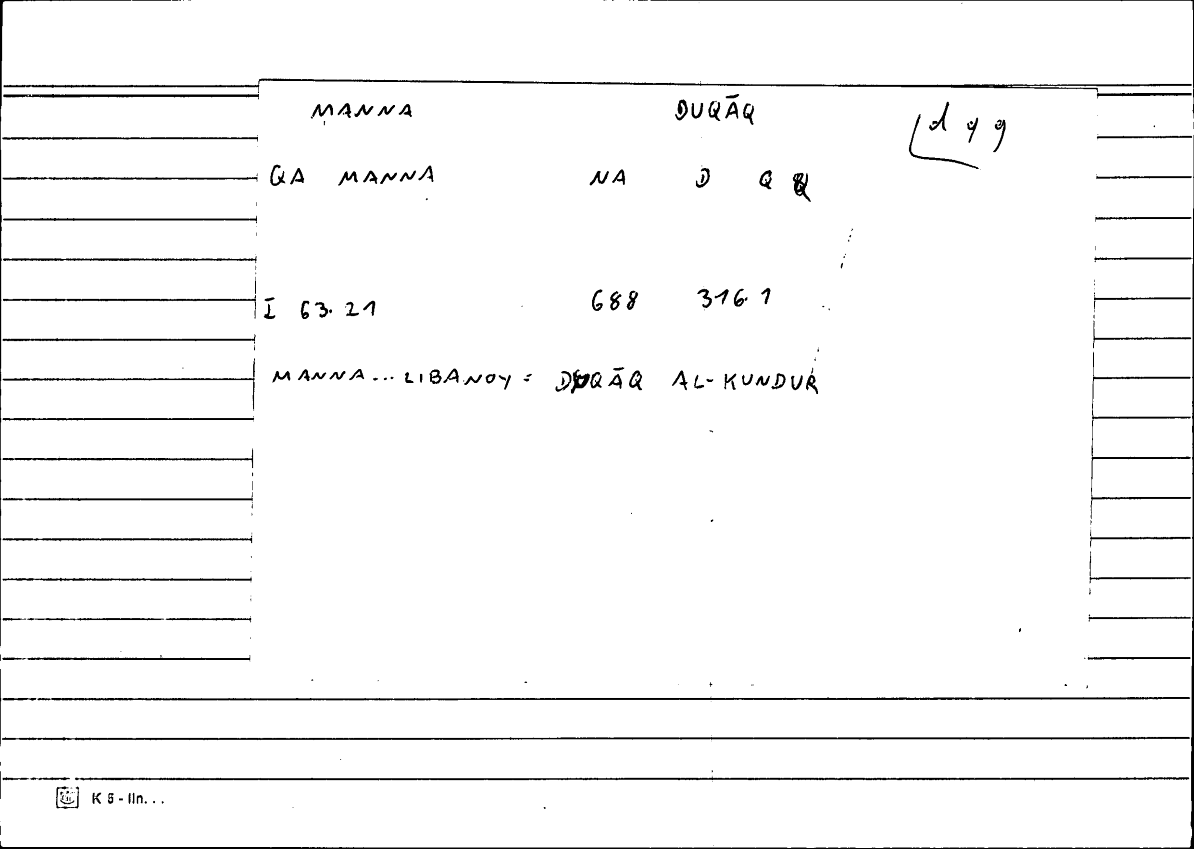 MANNA DUQĀQ dqq
QA MANNA NA D Q Q
I 63.21 688 316.1
MANNA...LIBANOY = DUQĀQ AL-KUNDUR
K 6 - lin...